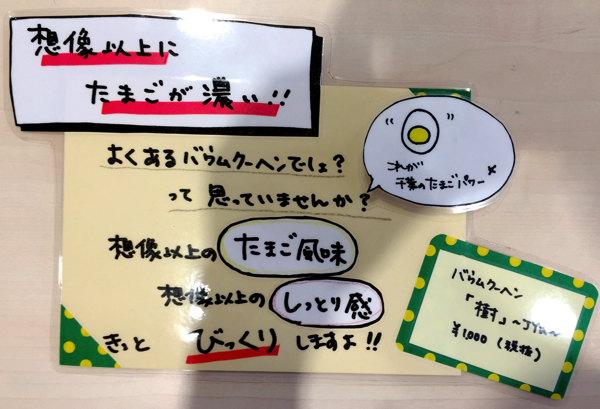 想像以上に
たまごが濃い!!
これが
千葉のたまごパワー
よくあるバウムクーヘンでしょ?
って思っていませんか?
想像以上の たまご風味
想像以上の しっとり感
きっと びっくり しますよ!!
バウムクーヘン
「樹」
¥1,000(税抜)